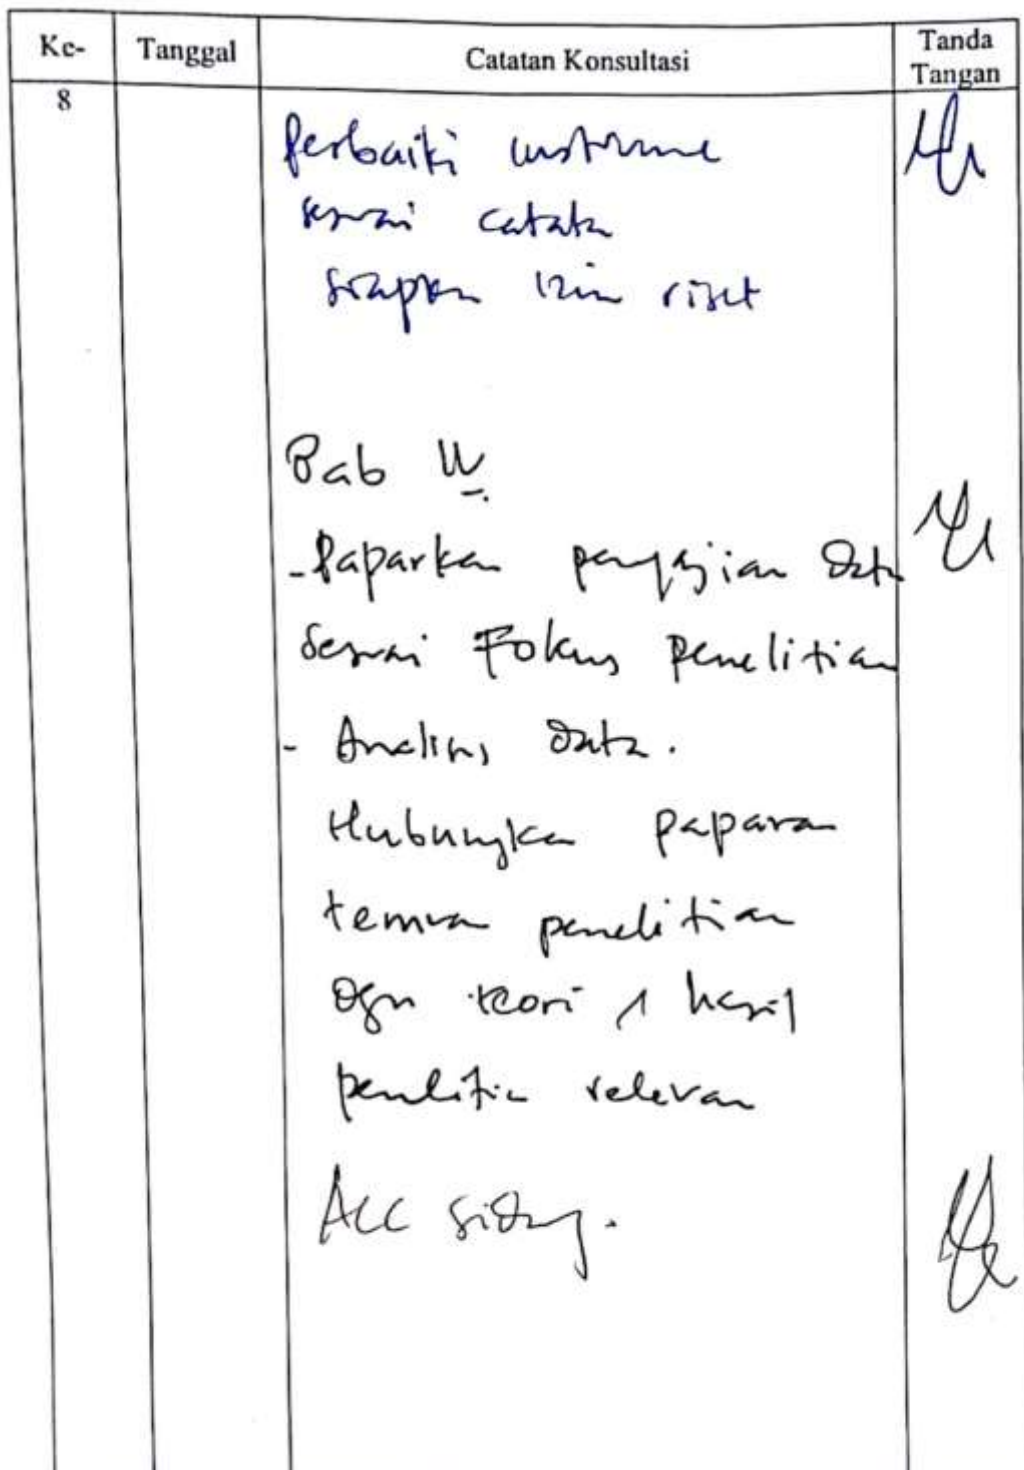 Ke- Tanggal Catatan Konsultasi Tanda Tangan
8
Perbaiki instrume
sesuai catata
siapkan izin riset
Bab IV
- Paparkan penyajian data
sesuai Fokus penelitian
- Analisis data.
Hubungka paparan
temuan penelitian
dgn teori / hasil
penelitian relevan
ACC sidang.